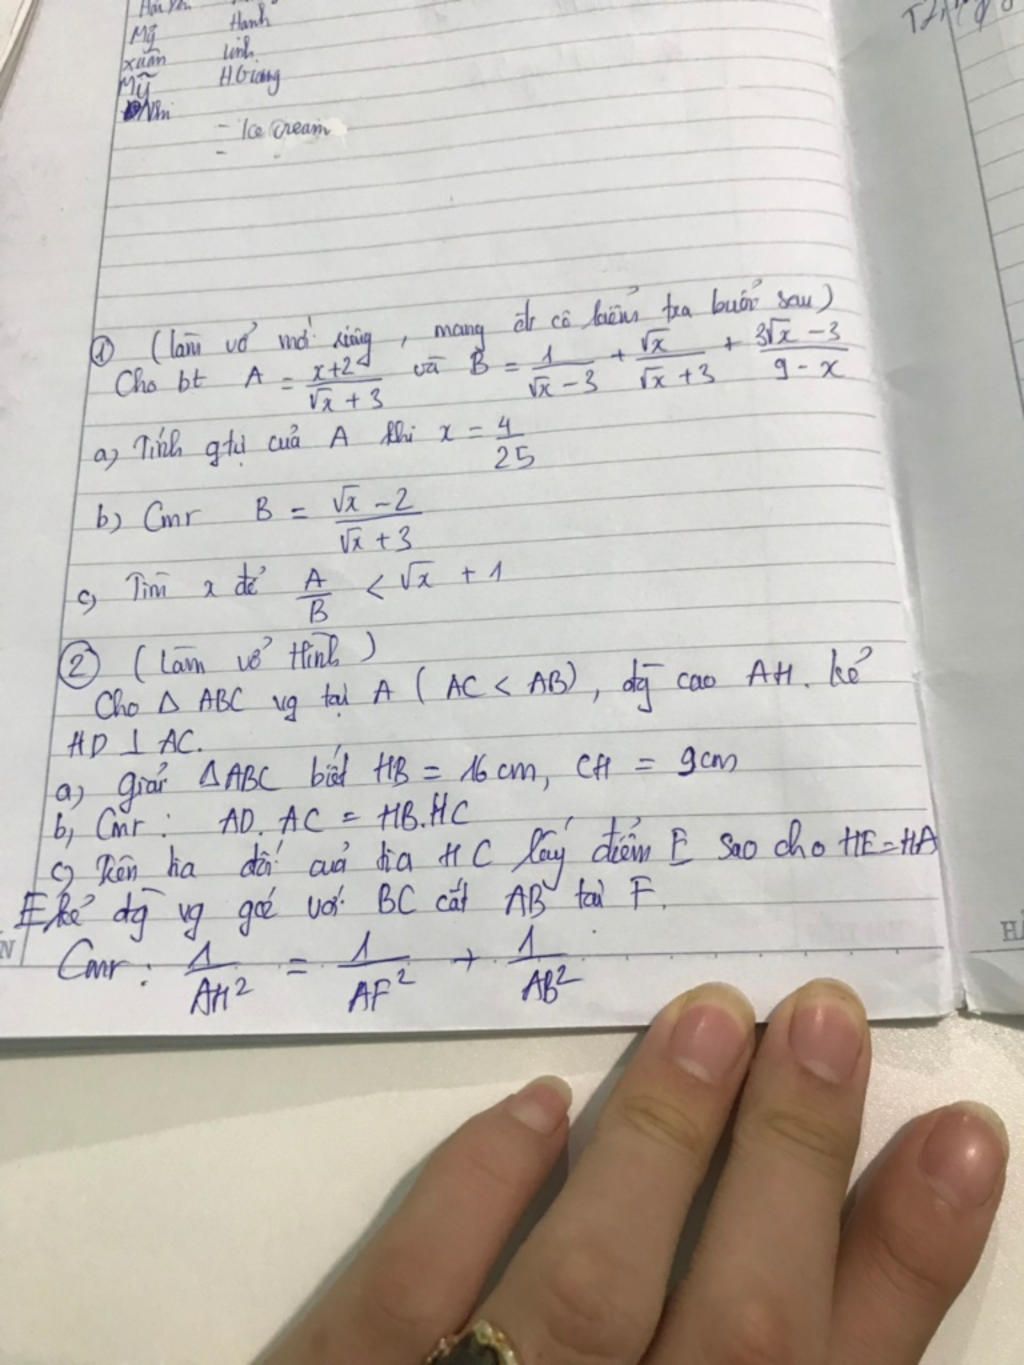 Mỹ Hanh
xuân Linh
Mỹ H.Giang
Nhi
- Ice cream
-
① (làm vở mới riêng, mang đi cô kiểm tra buổi sau)
Cho bt A = (x+2)/(√x + 3) và B = 1/(√x - 3) + √x/(√x + 3) + (3√x - 3)/(9 - x)
a) Tính gtrị của A khi x = 4/25
b) Cmr B = (√x - 2)/(√x + 3)
c) Tìm x để A/B < √x + 1
② (Làm vở Hình)
Cho Δ ABC vg tại A (AC < AB), đg cao AH. kẻ
HD ⊥ AC.
a) giải ΔABC biết HB = 16 cm, CH = 9cm
b) Cmr: AD. AC = HB.HC
c) Trên tia đối của tia HC lấy điểm E sao cho HE=HA
E kẻ đg vg góc với BC cắt AB tại F.
Cmr: 1/AH² = 1/AF² + 1/AB²